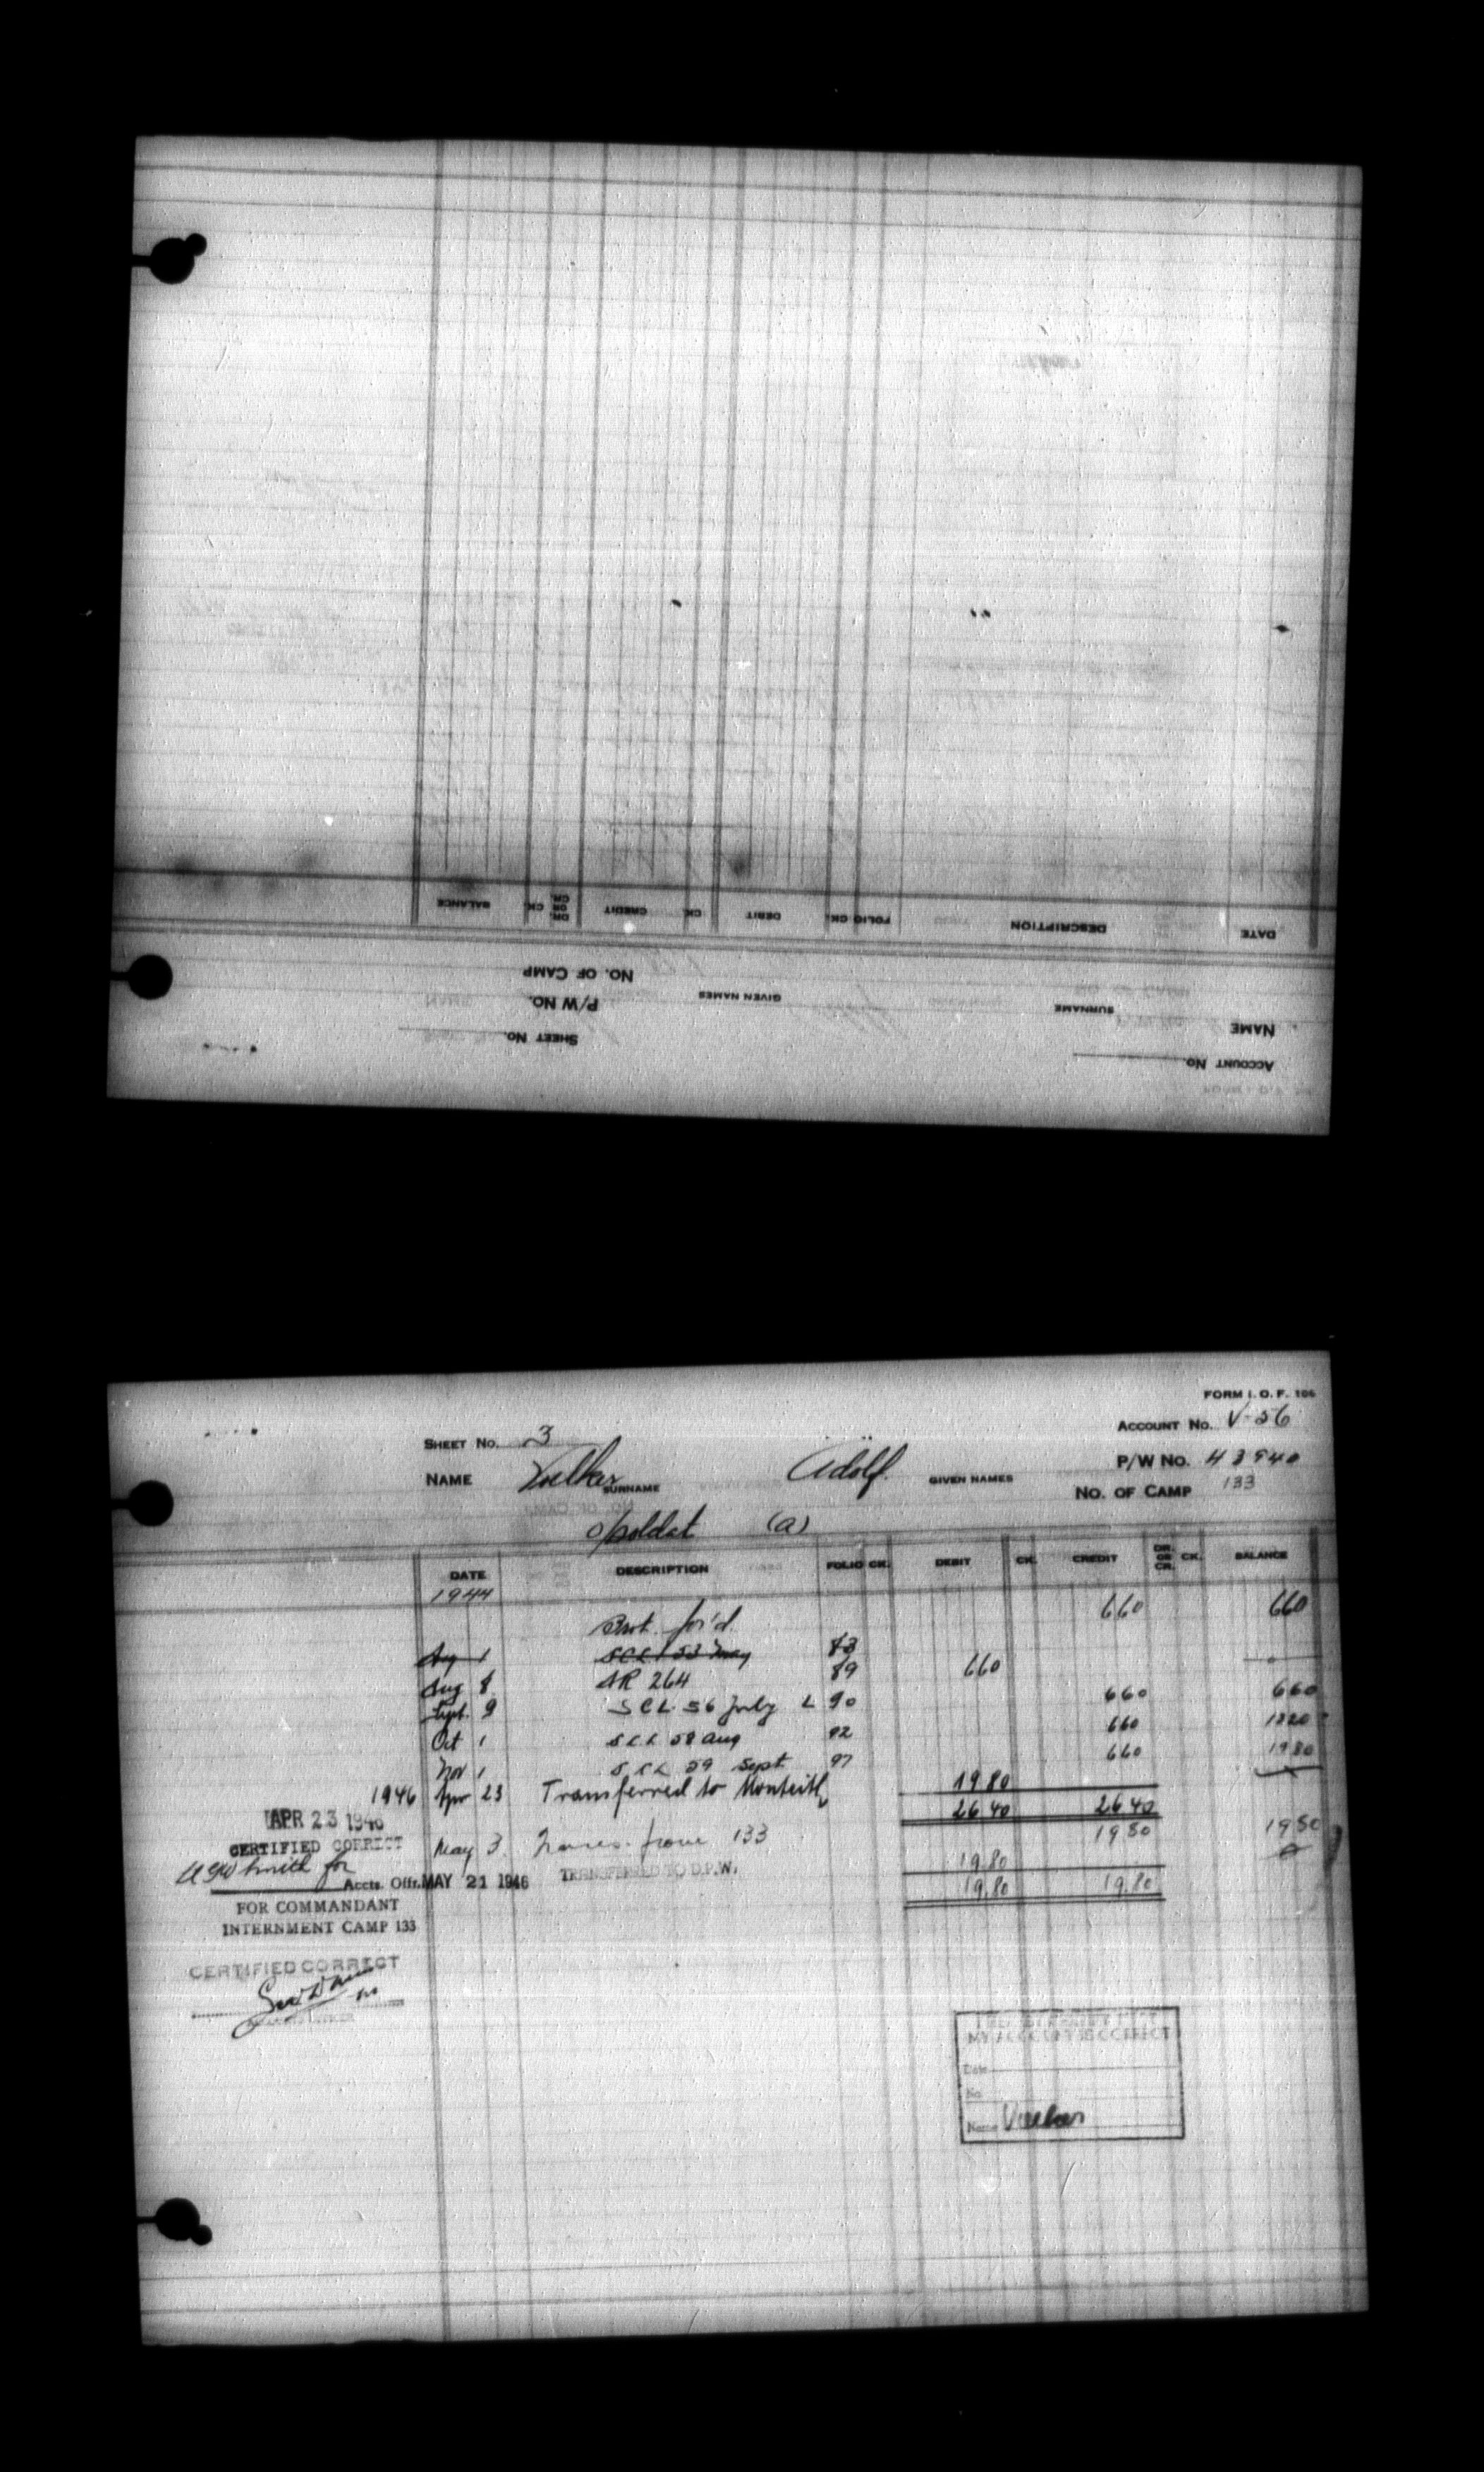 BALANCE CK. DR. OR CR. CREDIT CK. DEBIT FOLIO CK. DESCRIPTION DATE
NO. OF CAMP
P/W NO. GIVEN NAMES SURNAME NAME
SHEET NO. ACCOUNT NO.
FORM I. O. F. 106
SHEET NO. 3 ACCOUNT NO. V-56
NAME SURNAME Adolf. GIVEN NAMES P/W NO. 43940
NO. OF CAMP 133
o/soldat (a)
DATE DESCRIPTION FOLIO CK. DEBIT CK. CREDIT DR. OR CR. CK. BALANCE
1944
for'd. 660 660
Aug 1 SCL 53 May 83
Aug 8 AR 264 89 660 0
Sept. 9 SCL 56 July L 90 660 660
Oct 1 SCL 58 Aug 92 660 1320
Nov 1 SCL 59 Sept 97 660 1980
1946 Apr 23 Transferred to Monteith 19.80
APR 23 1946 26 40 26 40
CERTIFIED CORRECT May 3. Trans. from 133 19 80 19 80
for
Accts. Offr. MAY 21 1946 TRANSFERRED TO D.P.W. 19.80
19.80 19.80
FOR COMMANDANT
INTERNMENT CAMP 133
CERTIFIED CORRECT
I HEREBY CERTIFY THAT
MY ACCOUNT IS CORRECT
Date
No.
Name